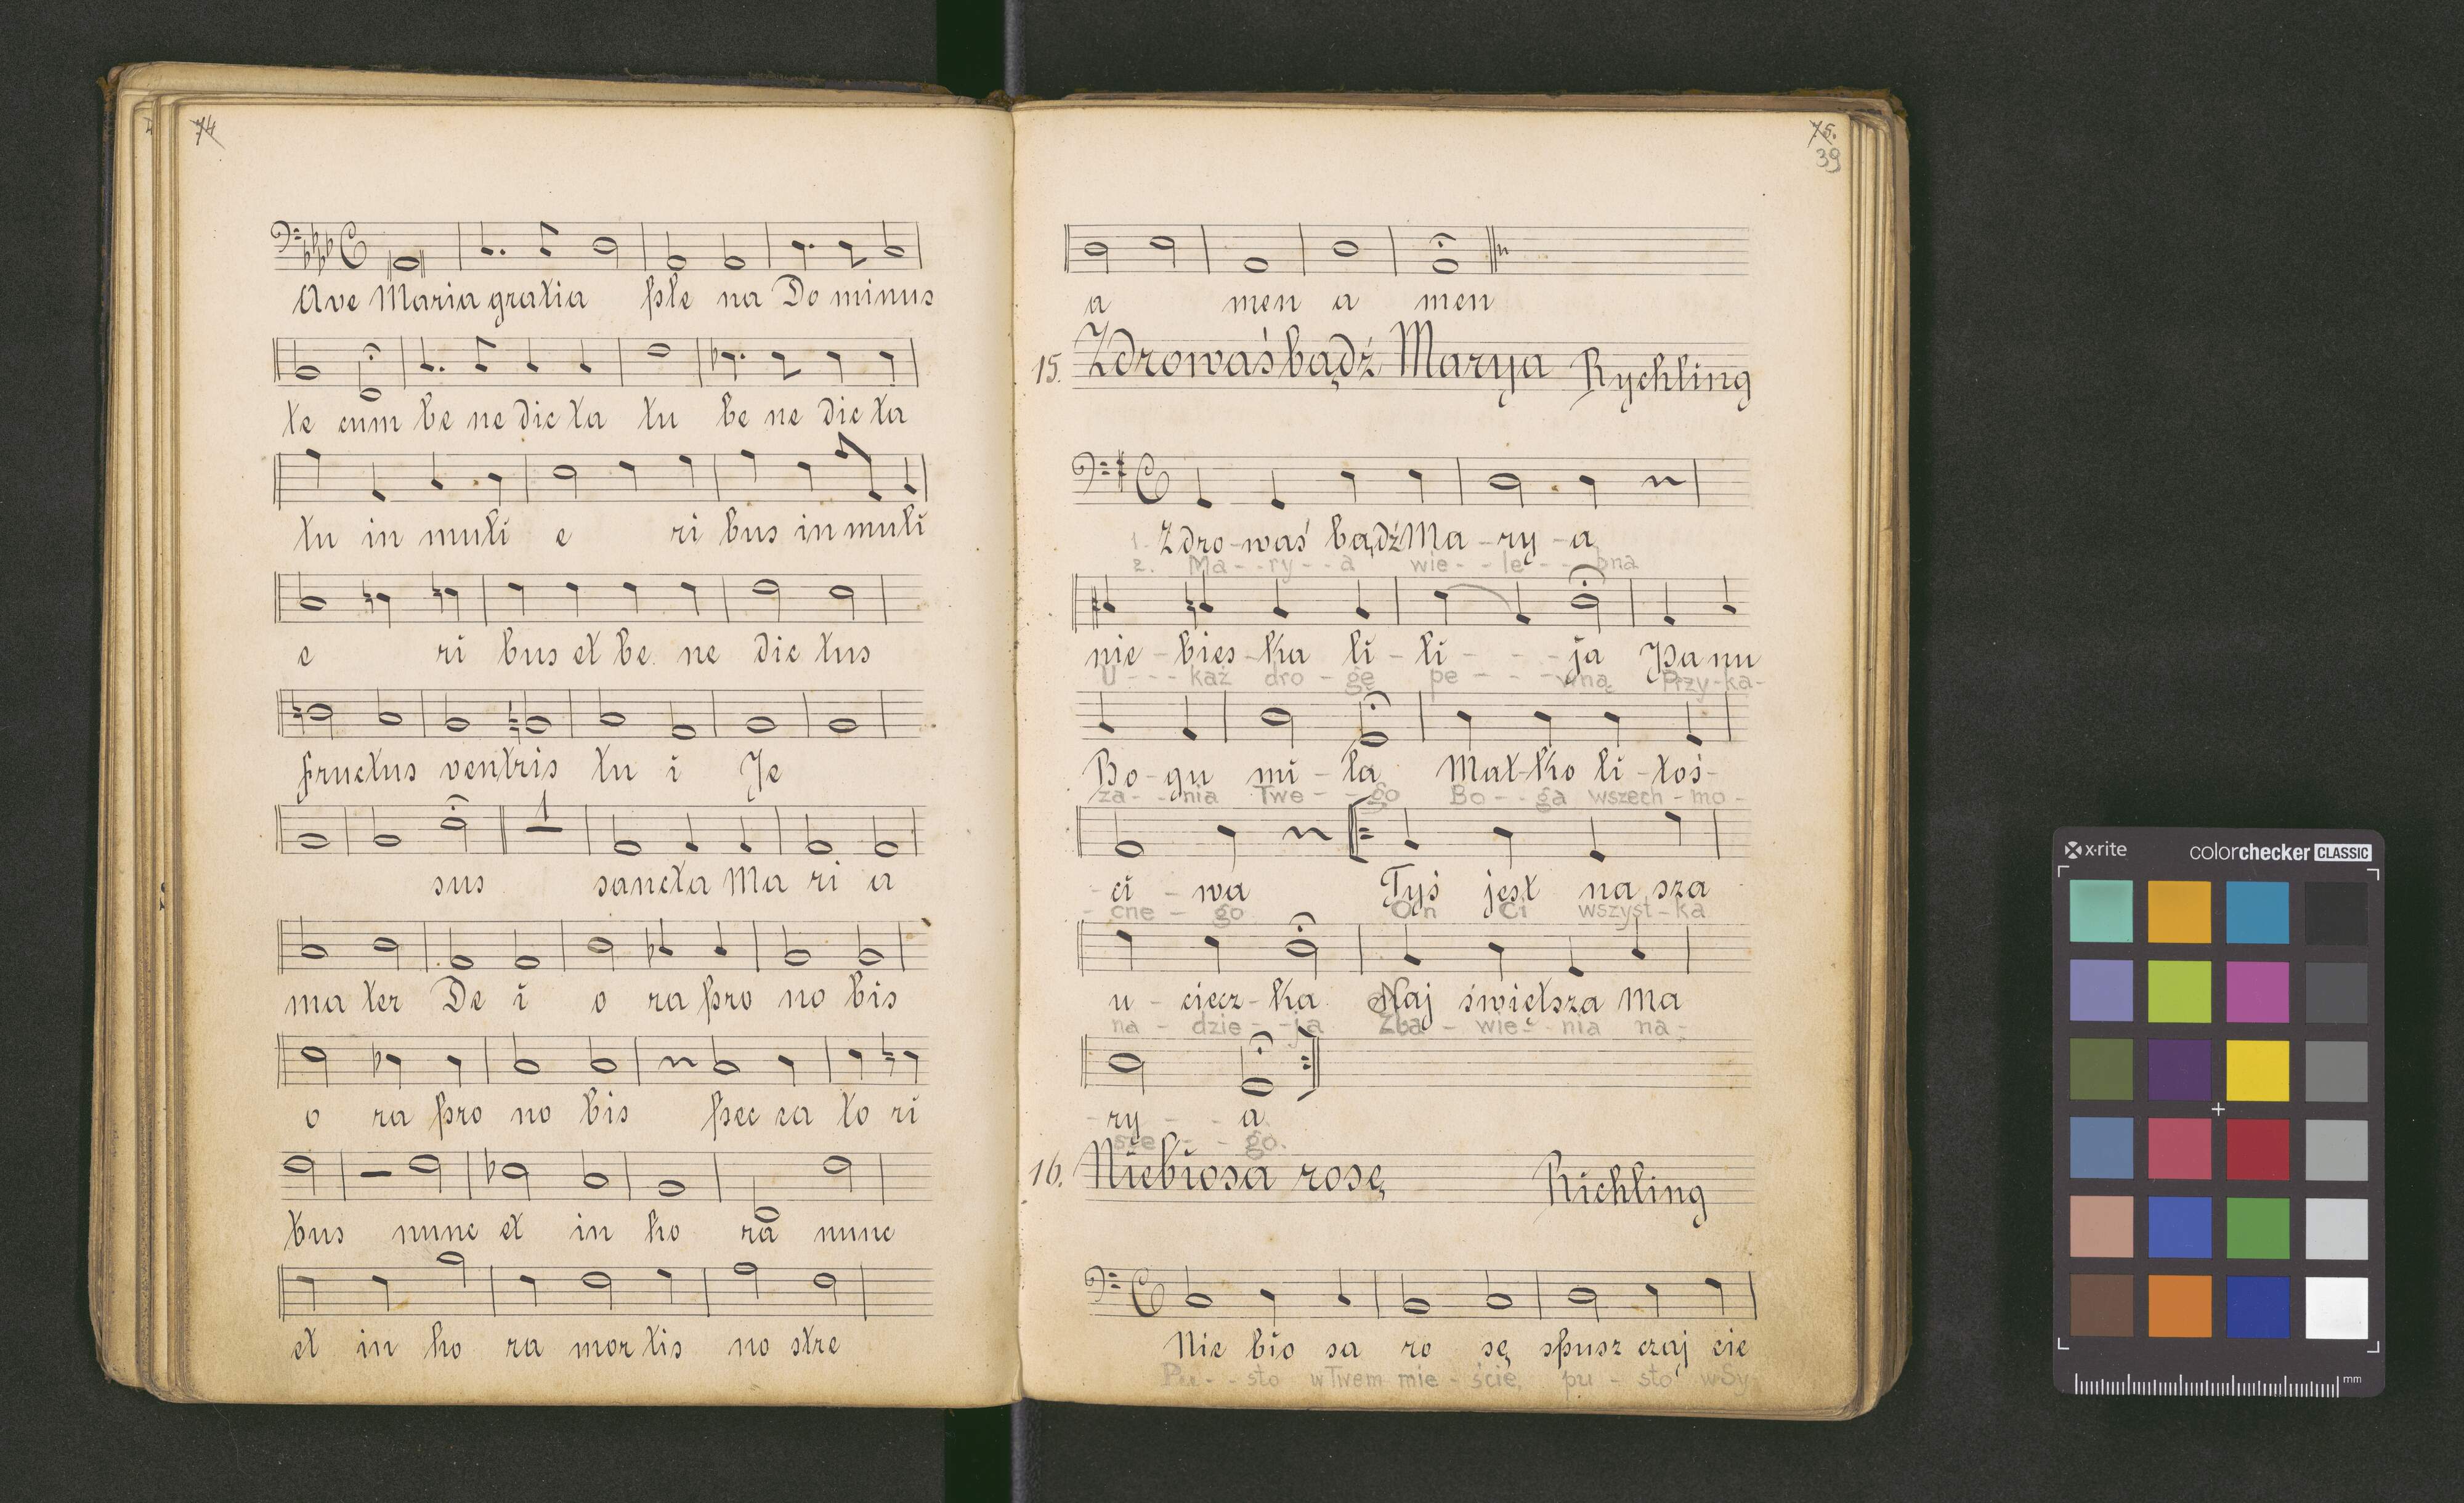 74
Ave Maria gratia ple na Do minus
te cum be ne dic ta tu be ne dic ta
tu in muli e ri bus in muli
e ri bus et be ne dic tus
fructus ventris tu i Je
1
sus sancta Ma ri a
ma ter De i o ra pro no bis
o ra pro no bis pec ca to ri
bus nunc et in ho ra nunc
et in ho ra mor tis no stre
75.
39
a men a men
15. Zdrowaś bądź Marya Rychling
1. Zdro-waś bądź Ma-ry-a
2. Ma--ry--a wie--le--bna
nie-bies-ka li-li---ja Panu
U---każ dro-gę pe----wną Przy-ka-
Bo-gu mi-ła Mat-ko li-toś-
za--nia Twe--go Bo--ga wszech-mo-
-ci-wa Tyś jest na sza
-cne-go On Ci wszyst-ka
u-ciecz-ka Naj świętsza Ma
na-dzie--ja Zba-wie--nia na-
-ry--a
sze---go.
16. Niebiosa rosę Richling
Nie bio sa ro sę spusz czaj cie
Pu--sto w Twem mie-ście, pu-sto w Sy-
x·rite colorchecker CLASSIC
mm